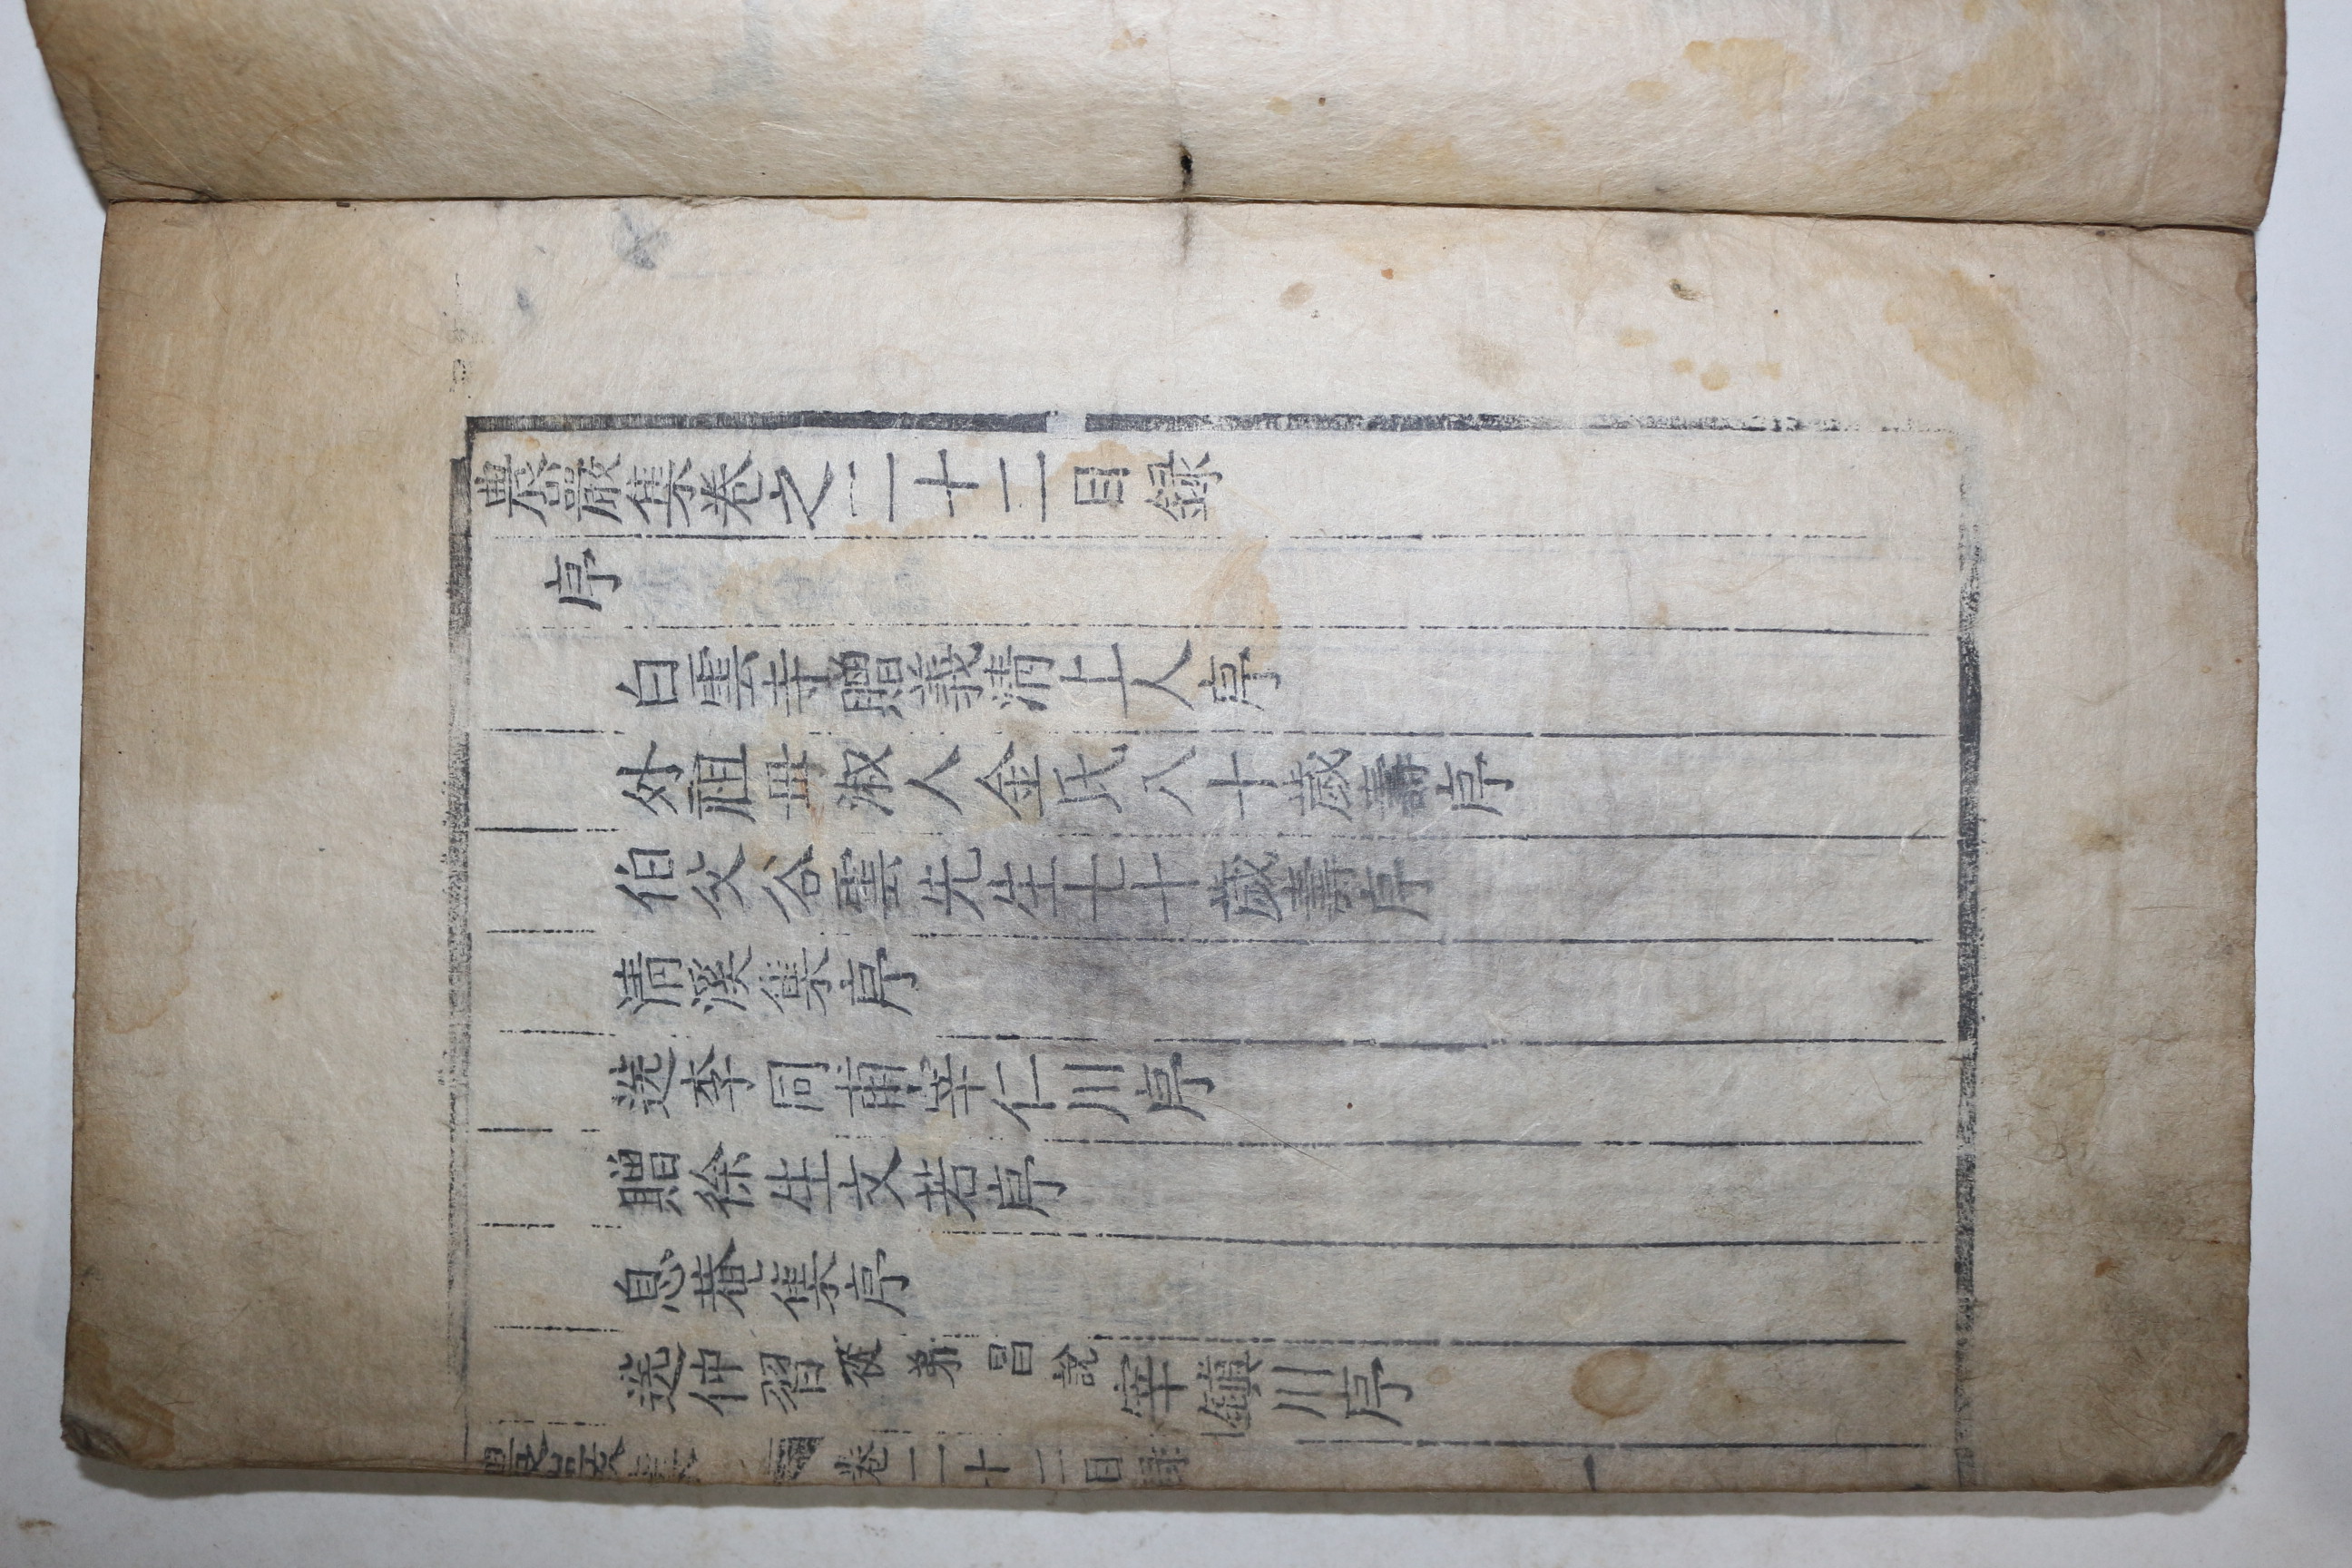 農巖集卷之二十二目録
序
白雲寺贈義淸上人序
外祖母淑人金氏八十歲壽序
伯父谷雲先生七十歲壽序
淸溪集序
送李同甫宰仁川序
贈徐生文若序
息菴集序
送仲習從弟昌說宰鎭川序
農巖集 卷二十二目録 一